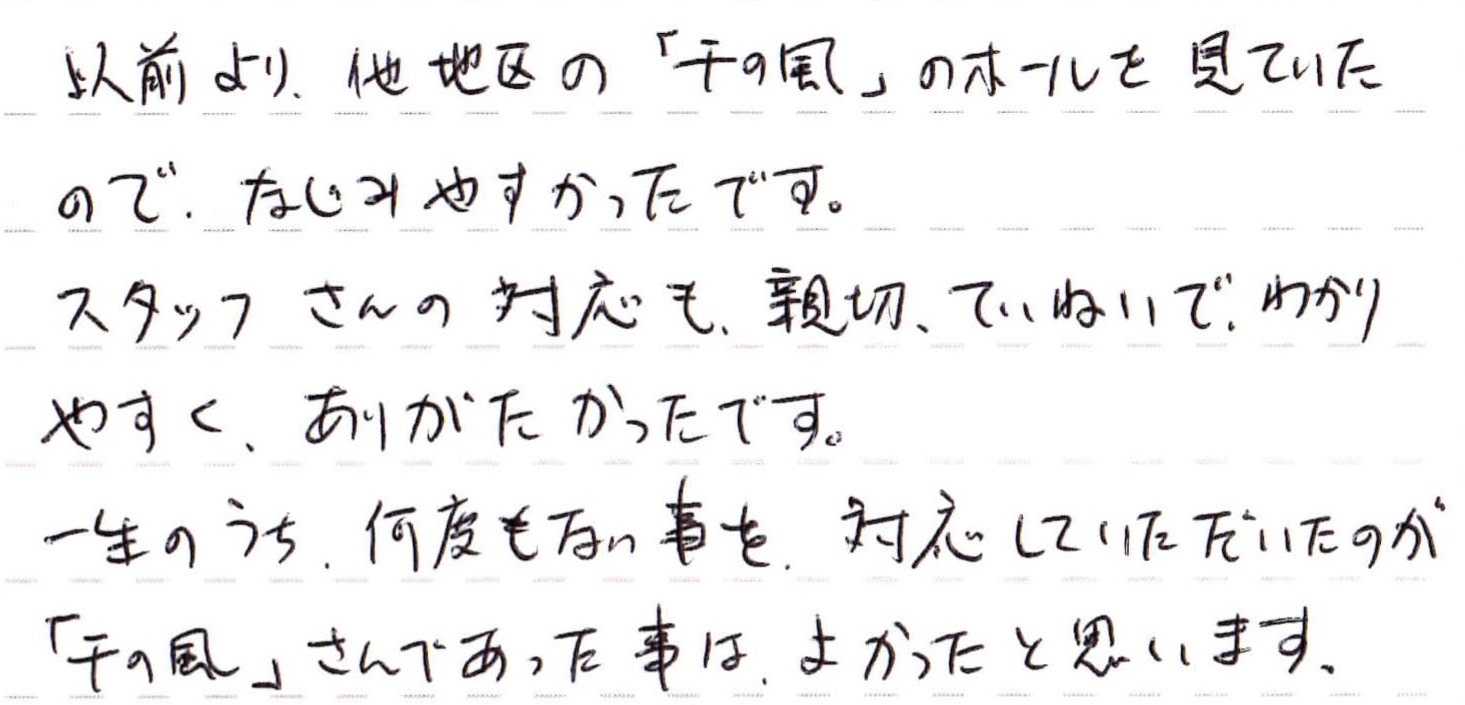 以前より、他地区の「千の風」のホールを見ていた
ので、なじみやすかったです。
スタッフさんの対応も、親切、ていねいで、わかり
やすく、ありがたかったです。
一生のうち、何度もない事を、対応していただいたのが
「千の風」さんであった事は、よかったと思います、